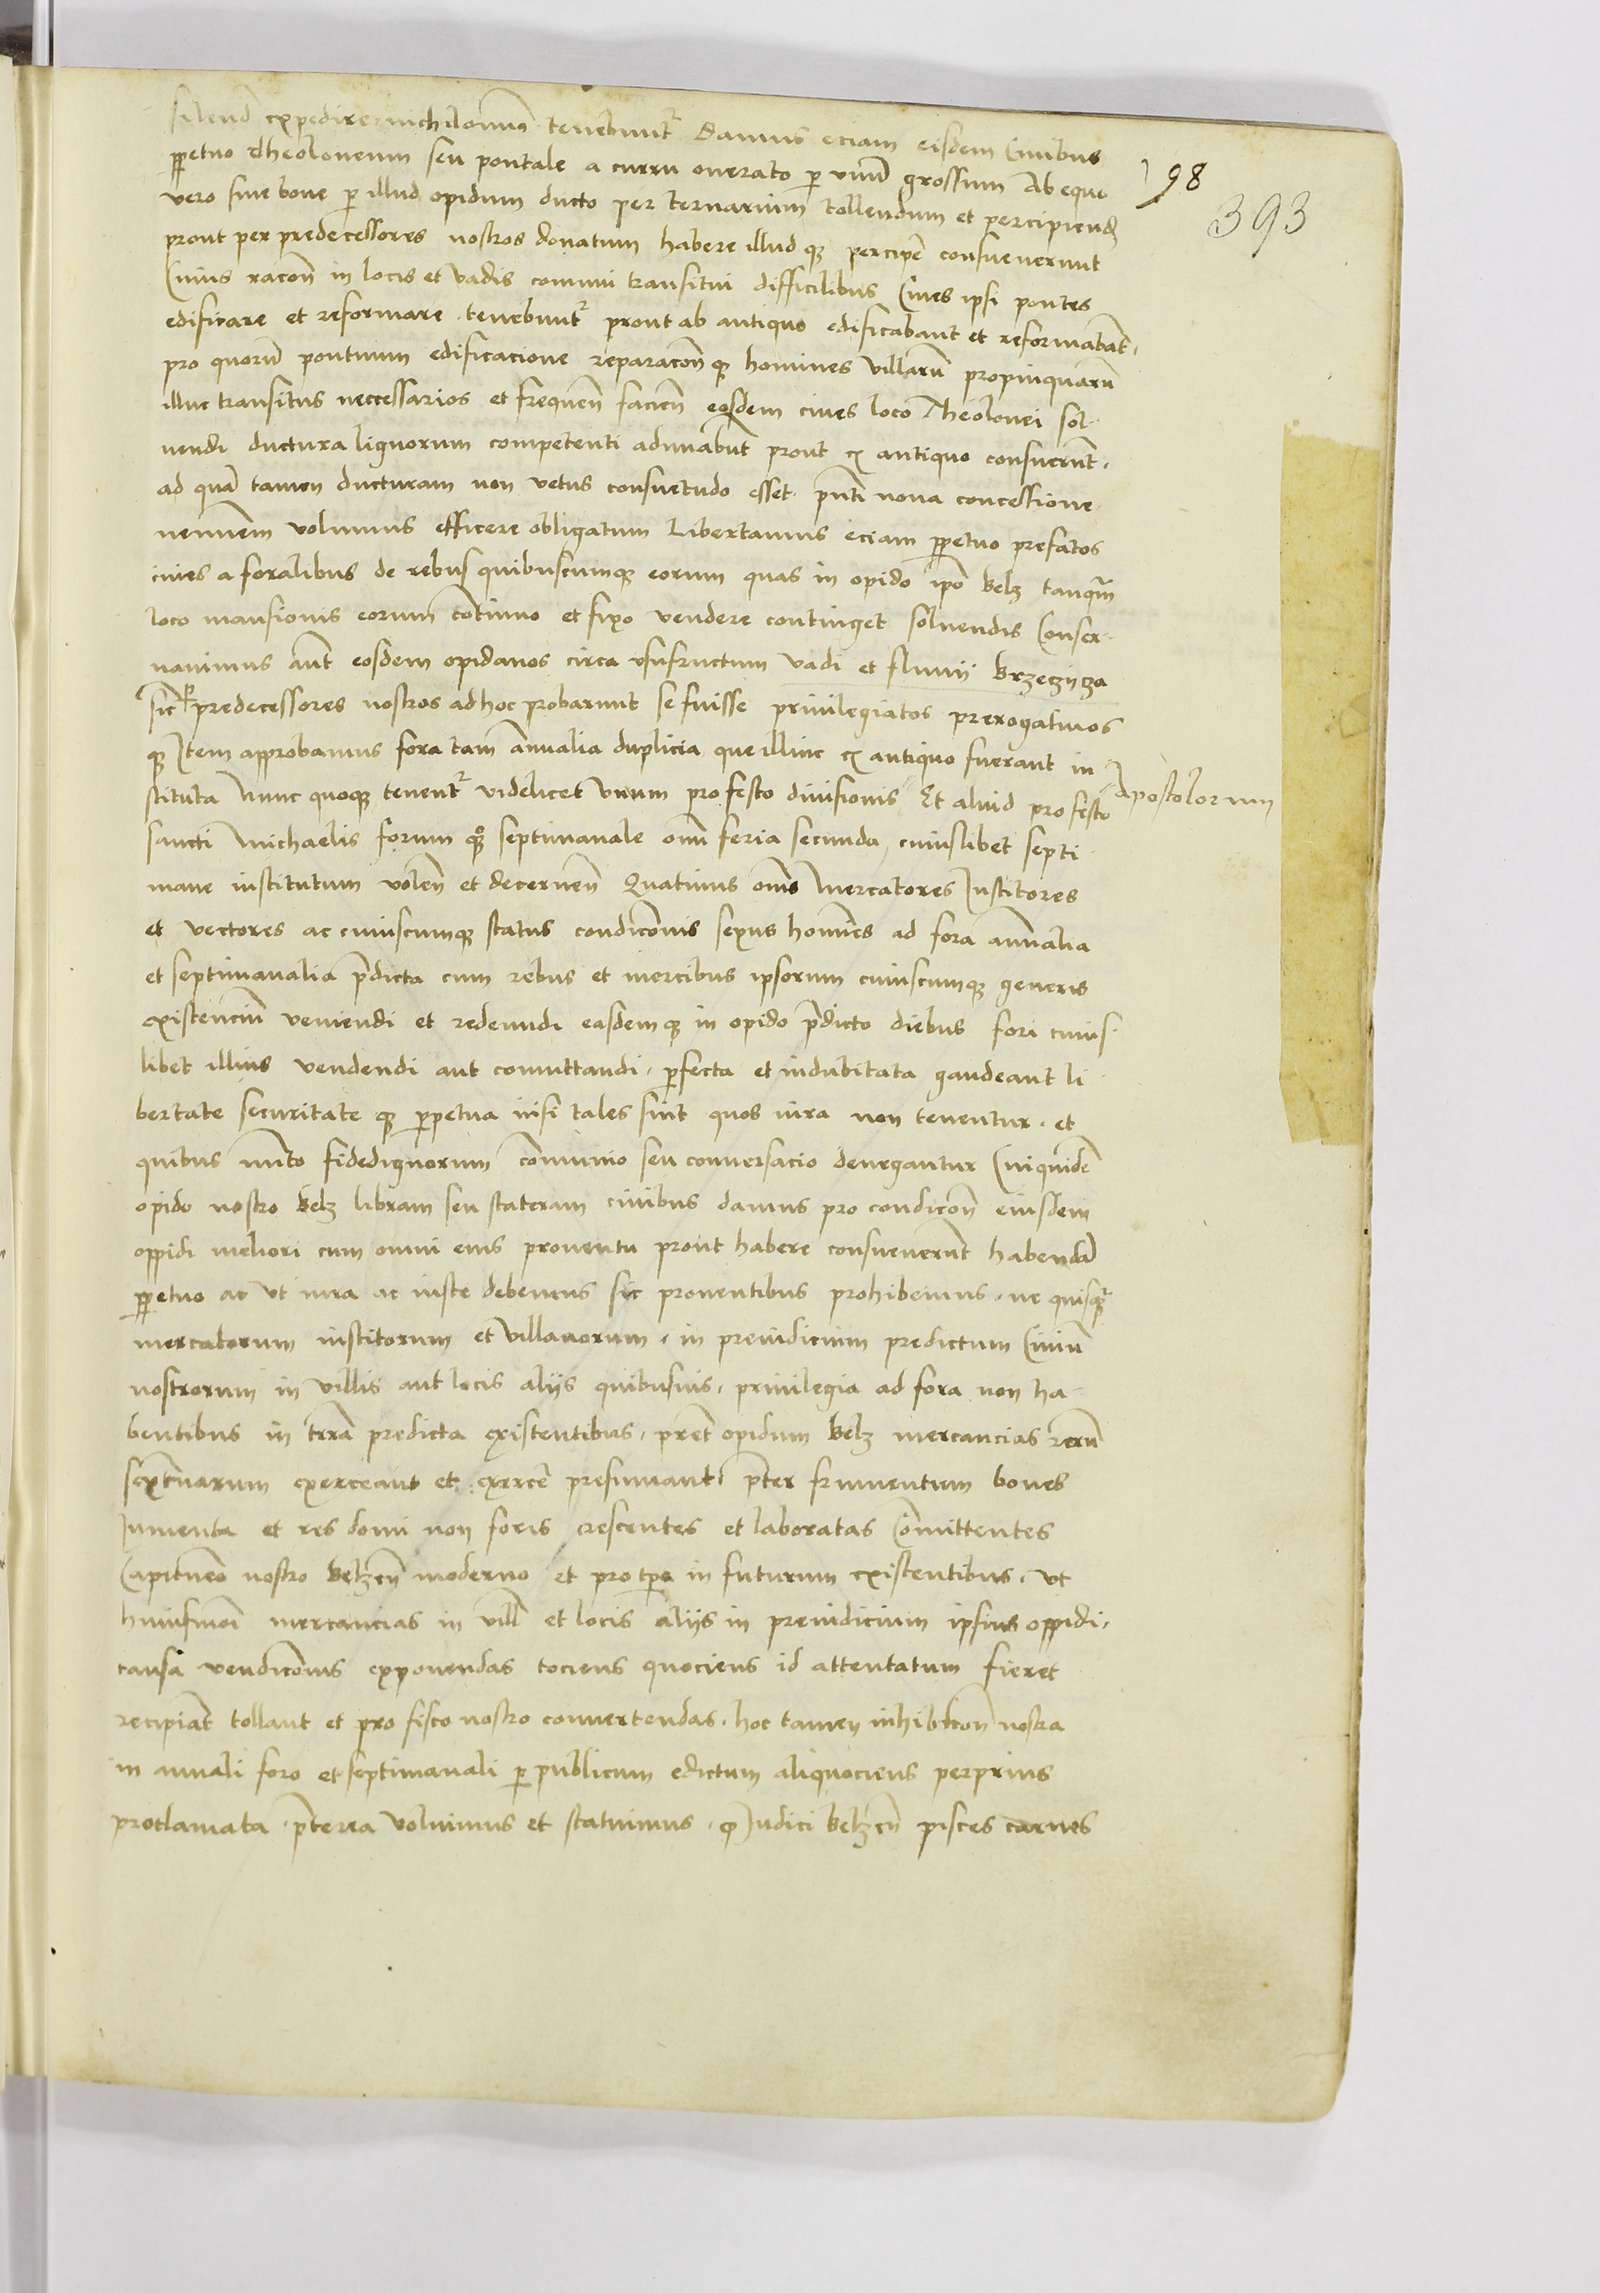 silend expedire nichilominus tenebunt2 Damus eciam eisdem Civibus
ppetuo Theoloneum seu pontale a curru onerato p unu grossum Ab equo
98
393
vero sive bove p illud opidum ducto per ternarium tollendum et percipiend
prout per predecessores nostros donatum habere illud q percipe consueverunt
Cuius racon in locis et vadis comuni transitui difficilibus Cives ipsi pontes
edificare et reformare tenebunt2 prout ab antiquo edificabant et reformabat,
pro quoru pontium edificacione reparacon q homines villaru propinquaru
illuc transitus neccessarios et frequen facien eosdem cives loco Theolonei sol-
vendi ductura lignorum competenti adiuvabut prout ex antiquo consuerut,
ad qua tamen ducturam non vetus consuetudo esset. pnti nova concessione
neminem volumus efficere obligatum Libertamus eciam ppetuo prefatos
cives a foralibus de rebus quibuscumq eorum quas in opido ipo Belz tanqm
loco mansionis eorum cotinuo et fixo vendere continget solvendis Conser-
vavimus aut eosdem opidanos circa usufructum vadi et fluvii Brzeczycza
sic k predecessores nostros adhoc probarunt se fuisse privilegiatos prerogativos
q Item approbamus fora tam annalia duplicia que illinc ex antiquo fuerant in
stituta Nunc quoq tenent2 videlicet Unum pro festo divisionis Et aliud pro festo Apostolorum
sancti Michaelis forum qq septimanale omi feria secunda, cuiuslibet septi
mane institutum volen et decernen Quatinus oms Mercatores Institores
et vectores ac cuiuscumq status condiconis sexus homines ad fora annalia
et septimanalia pdicta cum rebus et mercibus ipsorum cuiuscumq generis
existenciu veniendi et redeundi easdemq in opido pdicto diebus fori cuius-
libet illius vendendi aut comuttandi, pfecta et indubitata gaudeant li
bertate securitate q ppetua nisi tales sint quos iura non tenentur. et
quibus mito fidedignorum comunio seu conversacio denegantur Cuiquide
opido nostro Belz libram seu stateram civibus damus pro condicon eiusdem
oppidi meliori cum omni eius proventu prout habere consueverut habenda
ppetuo ac ut iura ac iuste debemus sic proventibus prohibemus, ne quisq
mercatorum institorum et villanorum, in preiudicium predictum Civiu
nostrorum in villis aut locis aliis quibusvis, privilegia ad fora non ha-
bentibus in trra predicta existentibus, pret opidum Belz mercancias reru
sextuarum exerceant et exerce presumant pter frumentum boves
Iumenta et res domi non foris crescentes et laboratas Comittentes
Capitneo nostro Belzen moderno et pro tpe in futurum existentibus, ut
huiusmoi mercancias in vill et locis aliis in preiudicium ipsius oppidi,
causa vendiconis exponendas tociens quociens id attentatum fieret
recipiat tollant et pro fisco nostro convertendas, hoc tamen inhibicon nostra
in annali foro et septimanali p publicum edictum aliquociens perprius
proclamata, pterea volumus et statuimus, q Iudici Belzen pisces carnes